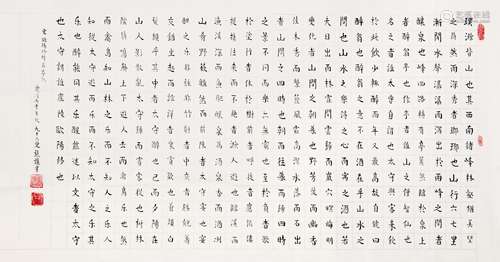 環滁皆山也其西南諸峰林壑優美望
之蔚然而深秀者瑯琊也山行六七里
漸聞水聲潺潺而瀉出於兩峰之間者
釀泉也峰回路轉有亭翼然臨於泉上
者醉翁亭也作亭者誰山之僧智仙也
名之者誰太守自謂也太守與客來飲
於此飲少輒醉而年又最高故自號曰
醉翁也醉翁之意不在酒在乎山水之
間也山水之樂得之心而寓之酒也若
夫日出而林霏開雲歸而巖穴暝晦明
變化者山間之朝暮也野芳發而幽香
佳木秀而繁陰風霜高潔水落而石出
者山間之四時也朝而往暮而歸四時
之景不同而樂亦無窮也至於負者歌
於途行者休於樹前者呼後者應傴僂
提攜往來而不絕者滁人遊也臨溪而
漁溪深而魚肥釀泉為酒泉香而酒洌
山肴野蔌雜然而前陳者太守宴也宴
酣之樂非絲非竹射者中弈者勝觥籌
交錯起坐而諠譁者眾賓懽也蒼顏白
髮頹然乎其間者太守醉也已而夕陽在
山人影散亂太守歸而賓客從也樹林
陰翳鳴聲上下遊人去而禽鳥樂也然
而禽鳥知山林之樂而不知人之樂人
知從太守遊而樂而不知太守之樂其
樂也醉能同其樂醒能述以文者太守
也太守謂誰廬陵歐陽修也